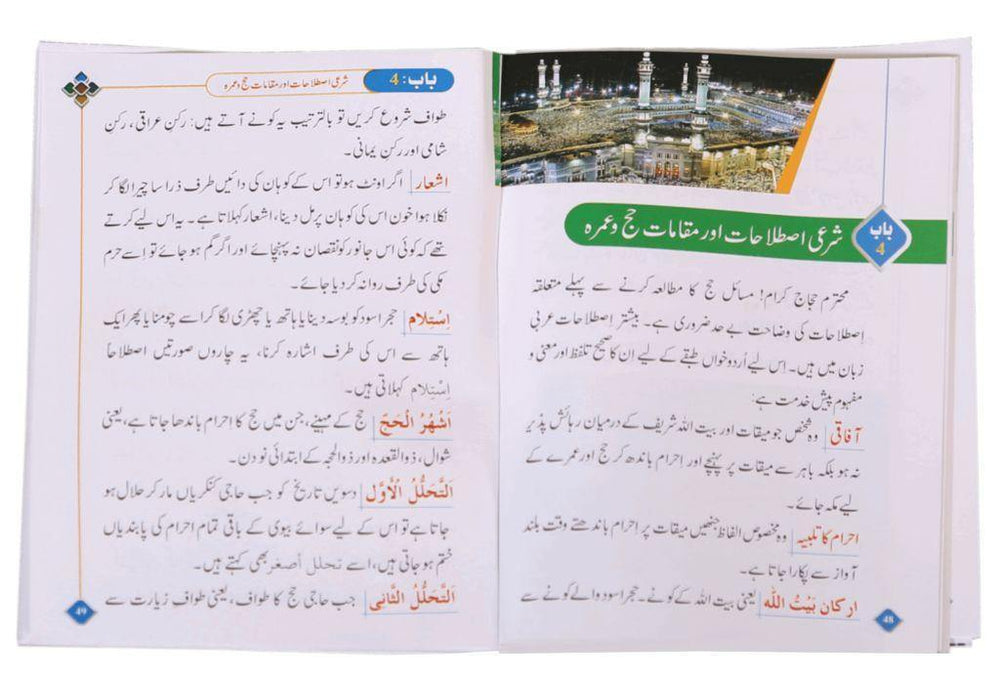 باب 4
شرعی اصطلاحات اور مقامات حج و عمرہ
محترم حجاج کرام! مسائل حج کا مطالعہ کرنے سے پہلے متعلقہ
اصطلاحات کی وضاحت بے حد ضروری ہے۔ بیشتر اِصطلاحات عربی
زبان میں ہیں۔ اِس لیے اُردو خواں طبقے کے لیے اِن کا صحیح تلفظ اور معنی و
مفہوم پیش خدمت ہے:
آفاقی وہ شخص جو میقات اور بیت اللہ شریف کے درمیان رہائش پذیر
نہ ہو بلکہ باہر سے میقات پر پہنچے اور اِحرام باندھ کر حج اور عمرے کے
لیے مکہ جائے۔
احرام کا تلبیہ وہ مخصوص الفاظ جنھیں میقات پر اِحرام باندھتے وقت بلند
آواز سے پکارا جاتا ہے۔
ارکان بَیْتُ اللّٰه یعنی بیت اللہ کے کونے۔ حجر اسود والے کونے سے
48
باب: 4 شرعی اصطلاحات اور مقامات حج و عمرہ
طواف شروع کریں تو بالترتیب یہ کونے آتے ہیں: رکنِ عراقی، رکنِ
شامی اور رکنِ یمانی۔
اشعار اگر اونٹ ہو تو اس کے کوہان کی دائیں طرف ذرا سا چیرا لگا کر
نکلا ہوا خون اس کی کوہان پر مل دینا، اشعار کہلاتا ہے۔ یہ اس لیے کرتے
تھے کہ کوئی اس جانور کو نقصان نہ پہنچائے اور اگر گم ہو جائے تو اِسے حرم
مکی کی طرف روانہ کر دیا جائے۔
اِسْتِلام حجر اسود کو بوسہ دینا یا ہاتھ یا چھڑی لگا کر اسے چومنا یا پھر ایک
ہاتھ سے اس کی طرف اشارہ کرنا، یہ چاروں صورتیں اصطلاحاً
اِسْتِلام کہلاتی ہیں۔
اَشْهُرُ الْحَجّ حج کے مہینے، جن میں حج کا اِحرام باندھا جاتا ہے، یعنی
شوال، ذوالقعدہ اور ذوالحجہ کے ابتدائی نو دن۔
اَلتَّحَلُّلُ الْاَوَّل دسویں تاریخ کو جب حاجی کنکریاں مار کر حلال ہو
جاتا ہے تو اس کے لیے سوائے بیوی کے باقی تمام احرام کی پابندیاں
ختم ہو جاتی ہیں، اسے تحلل أصغر بھی کہتے ہیں۔
اَلتَّحَلُّلُ الثَّانی جب حاجی حج کا طواف، یعنی طوافِ زیارت سے
49